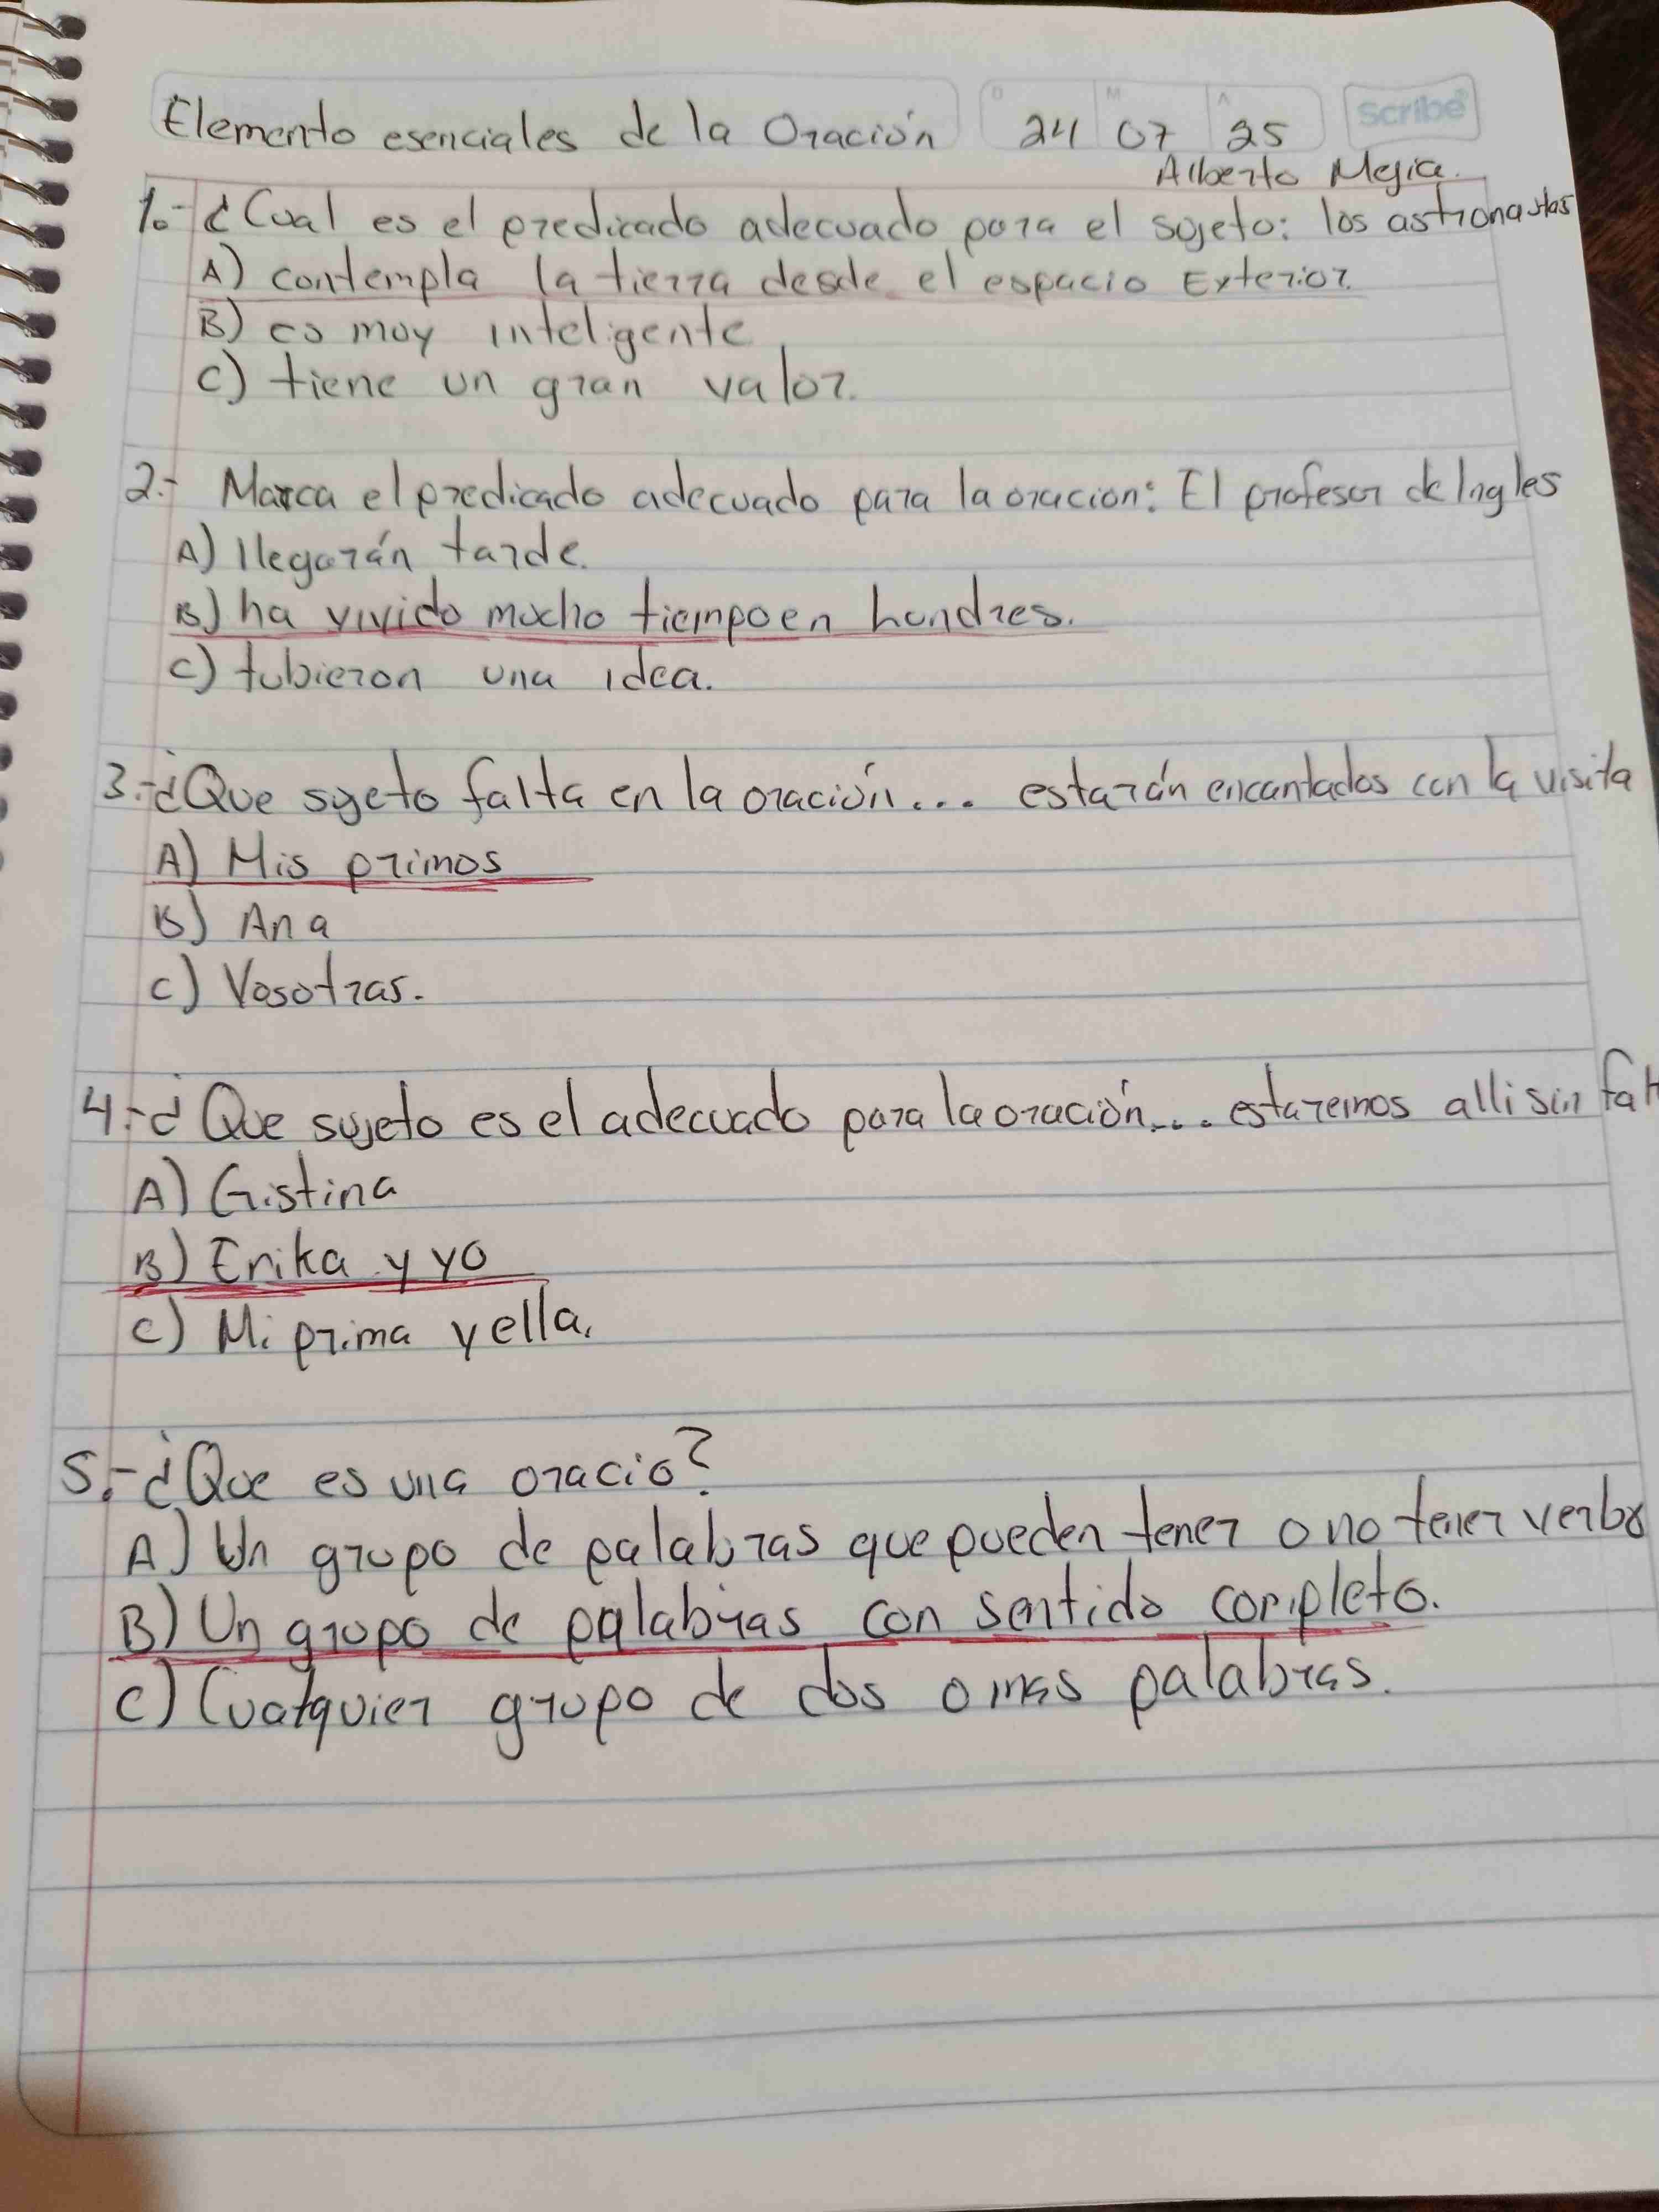 Elemento esenciales de la Oración 24 07 25 Scribe
D M A
Alberto Mejia.
1.- ¿Cual es el predicado adecuado para el sujeto: los astronautas
A) contempla la tierra desde el espacio Exterior.
B) es muy inteligente
C) tiene un gran valor.
2.- Marca el predicado adecuado para la oracion: El profesor de Ingles
A) llegarán tarde.
B) ha vivido mucho tiempo en hondres.
C) tubieron una idea.
3.- ¿Que sujeto falta en la oración... estarán encantados con la visita
A) Mis primos
B) Ana
C) Vosotras.
4.- ¿Que sujeto es el adecuado para la oración... estaremos alli sin falt
A) Cristina
B) Erika y yo
C) Mi prima y ella.
5.- ¿Que es una oracio?
A) Un grupo de palabras que pueden tener o no tener verbo
B) Un grupo de palabras con sentido completo.
C) Cualquier grupo de dos o mas palabras.